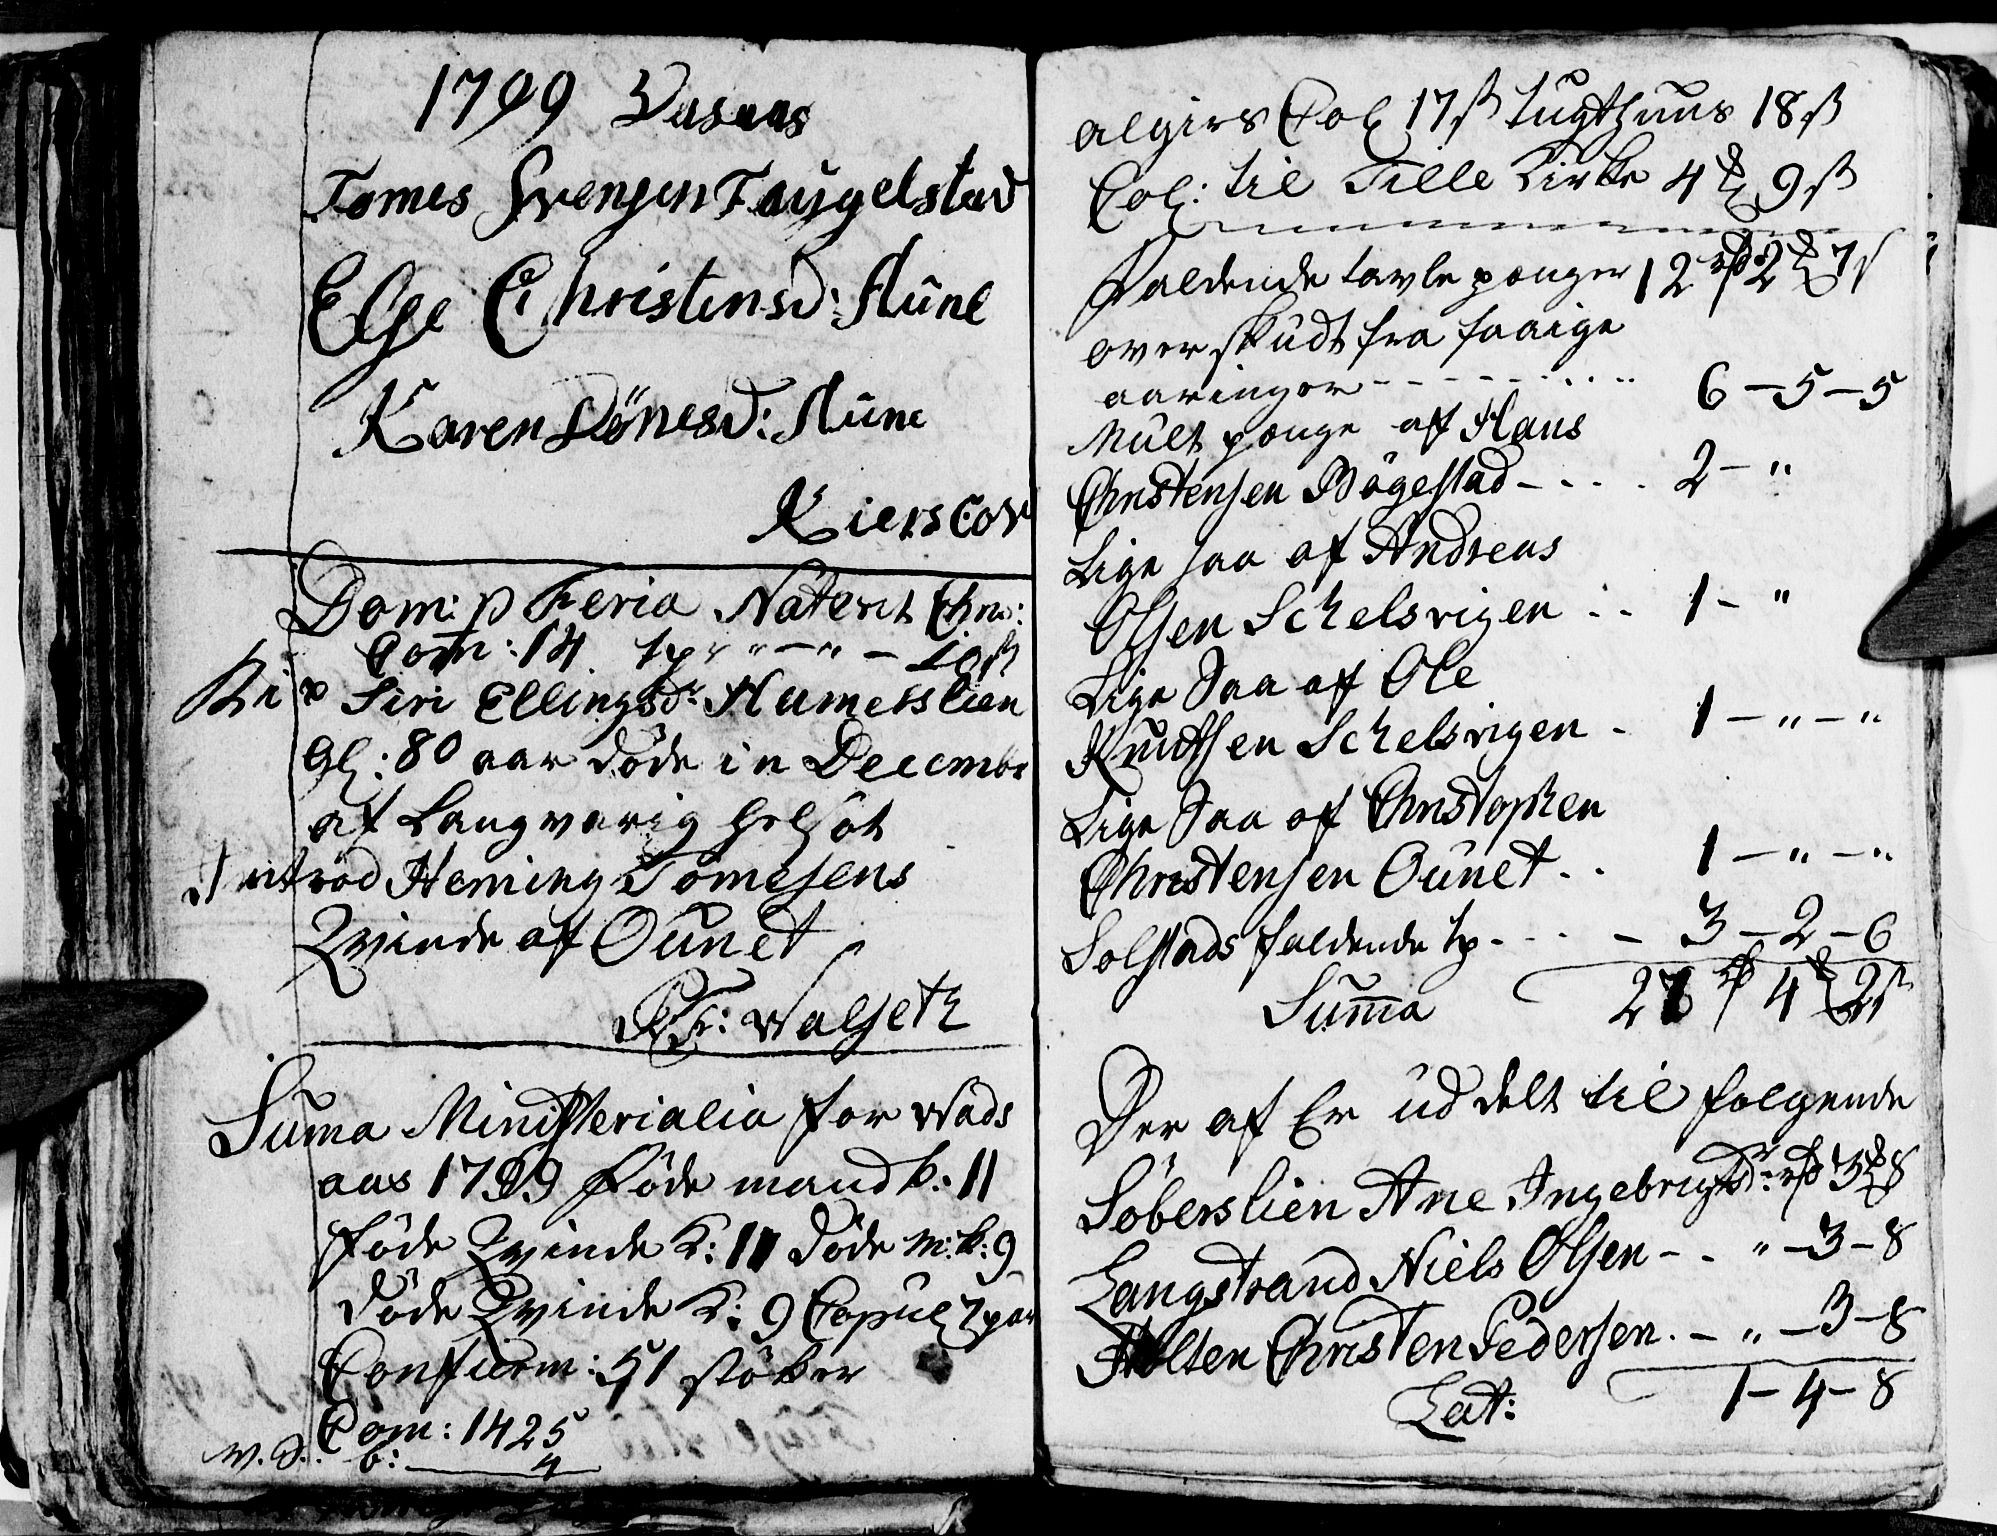 1799 Vasaas
Tomes Svensen Faugelstad
Else Christensd: Aune
Karen Jönesd: Aune
Kierscov
Dom: p Feria Nativit Chri:
Com: 14 tp " – " – 10 ß
Siri Ellingsdr Humetslien
Gl: 80 aar döde in Decembr
af Langvarig helsöt
Introd Heming Tomesens
Qvinde af Ounet
Pr: Walseth
Suma Ministerialia for Wads
aas 1799 föde mandk: 11
föde Qvinde K: 11 döde M: k: 9
döde Qvinde K: 9 Copul 7 par
Confirm: 51 stöker
Com: 1425
W. S. b: 4
algirs Col 17 ß tugthuus 18 ß
Col: til Tille Kirke 4 9 ß
Faldende tavle penger 12 rd 2 7 ß
overskudt fra forige
aaringer - - - - 6 – 5 – 5
Mult penge af Hans
Christensen Bögestad - - - 2 – "
Lige saa af Andreas
Olsen Schelsvigen - - 1 – "
Lige Saa af Ole
Knutsen Schelsvigen - 1 – " – "
Lige Saa af Christophen
Christensen Ounet - - 1 – " – "
Solstads faldende tp - - - 3 – 2 – 6
Suma 27 rd 4 2 ß
Der af Er uddelt til folgende
Söberslien Ane Ingebrigtsdr: rd 3 8
Langstrand Niels Olsen - - " – 3 – 8
Holten Christen Pedersen - – " – 3 – 8
Lat: 1 – 4 – 8